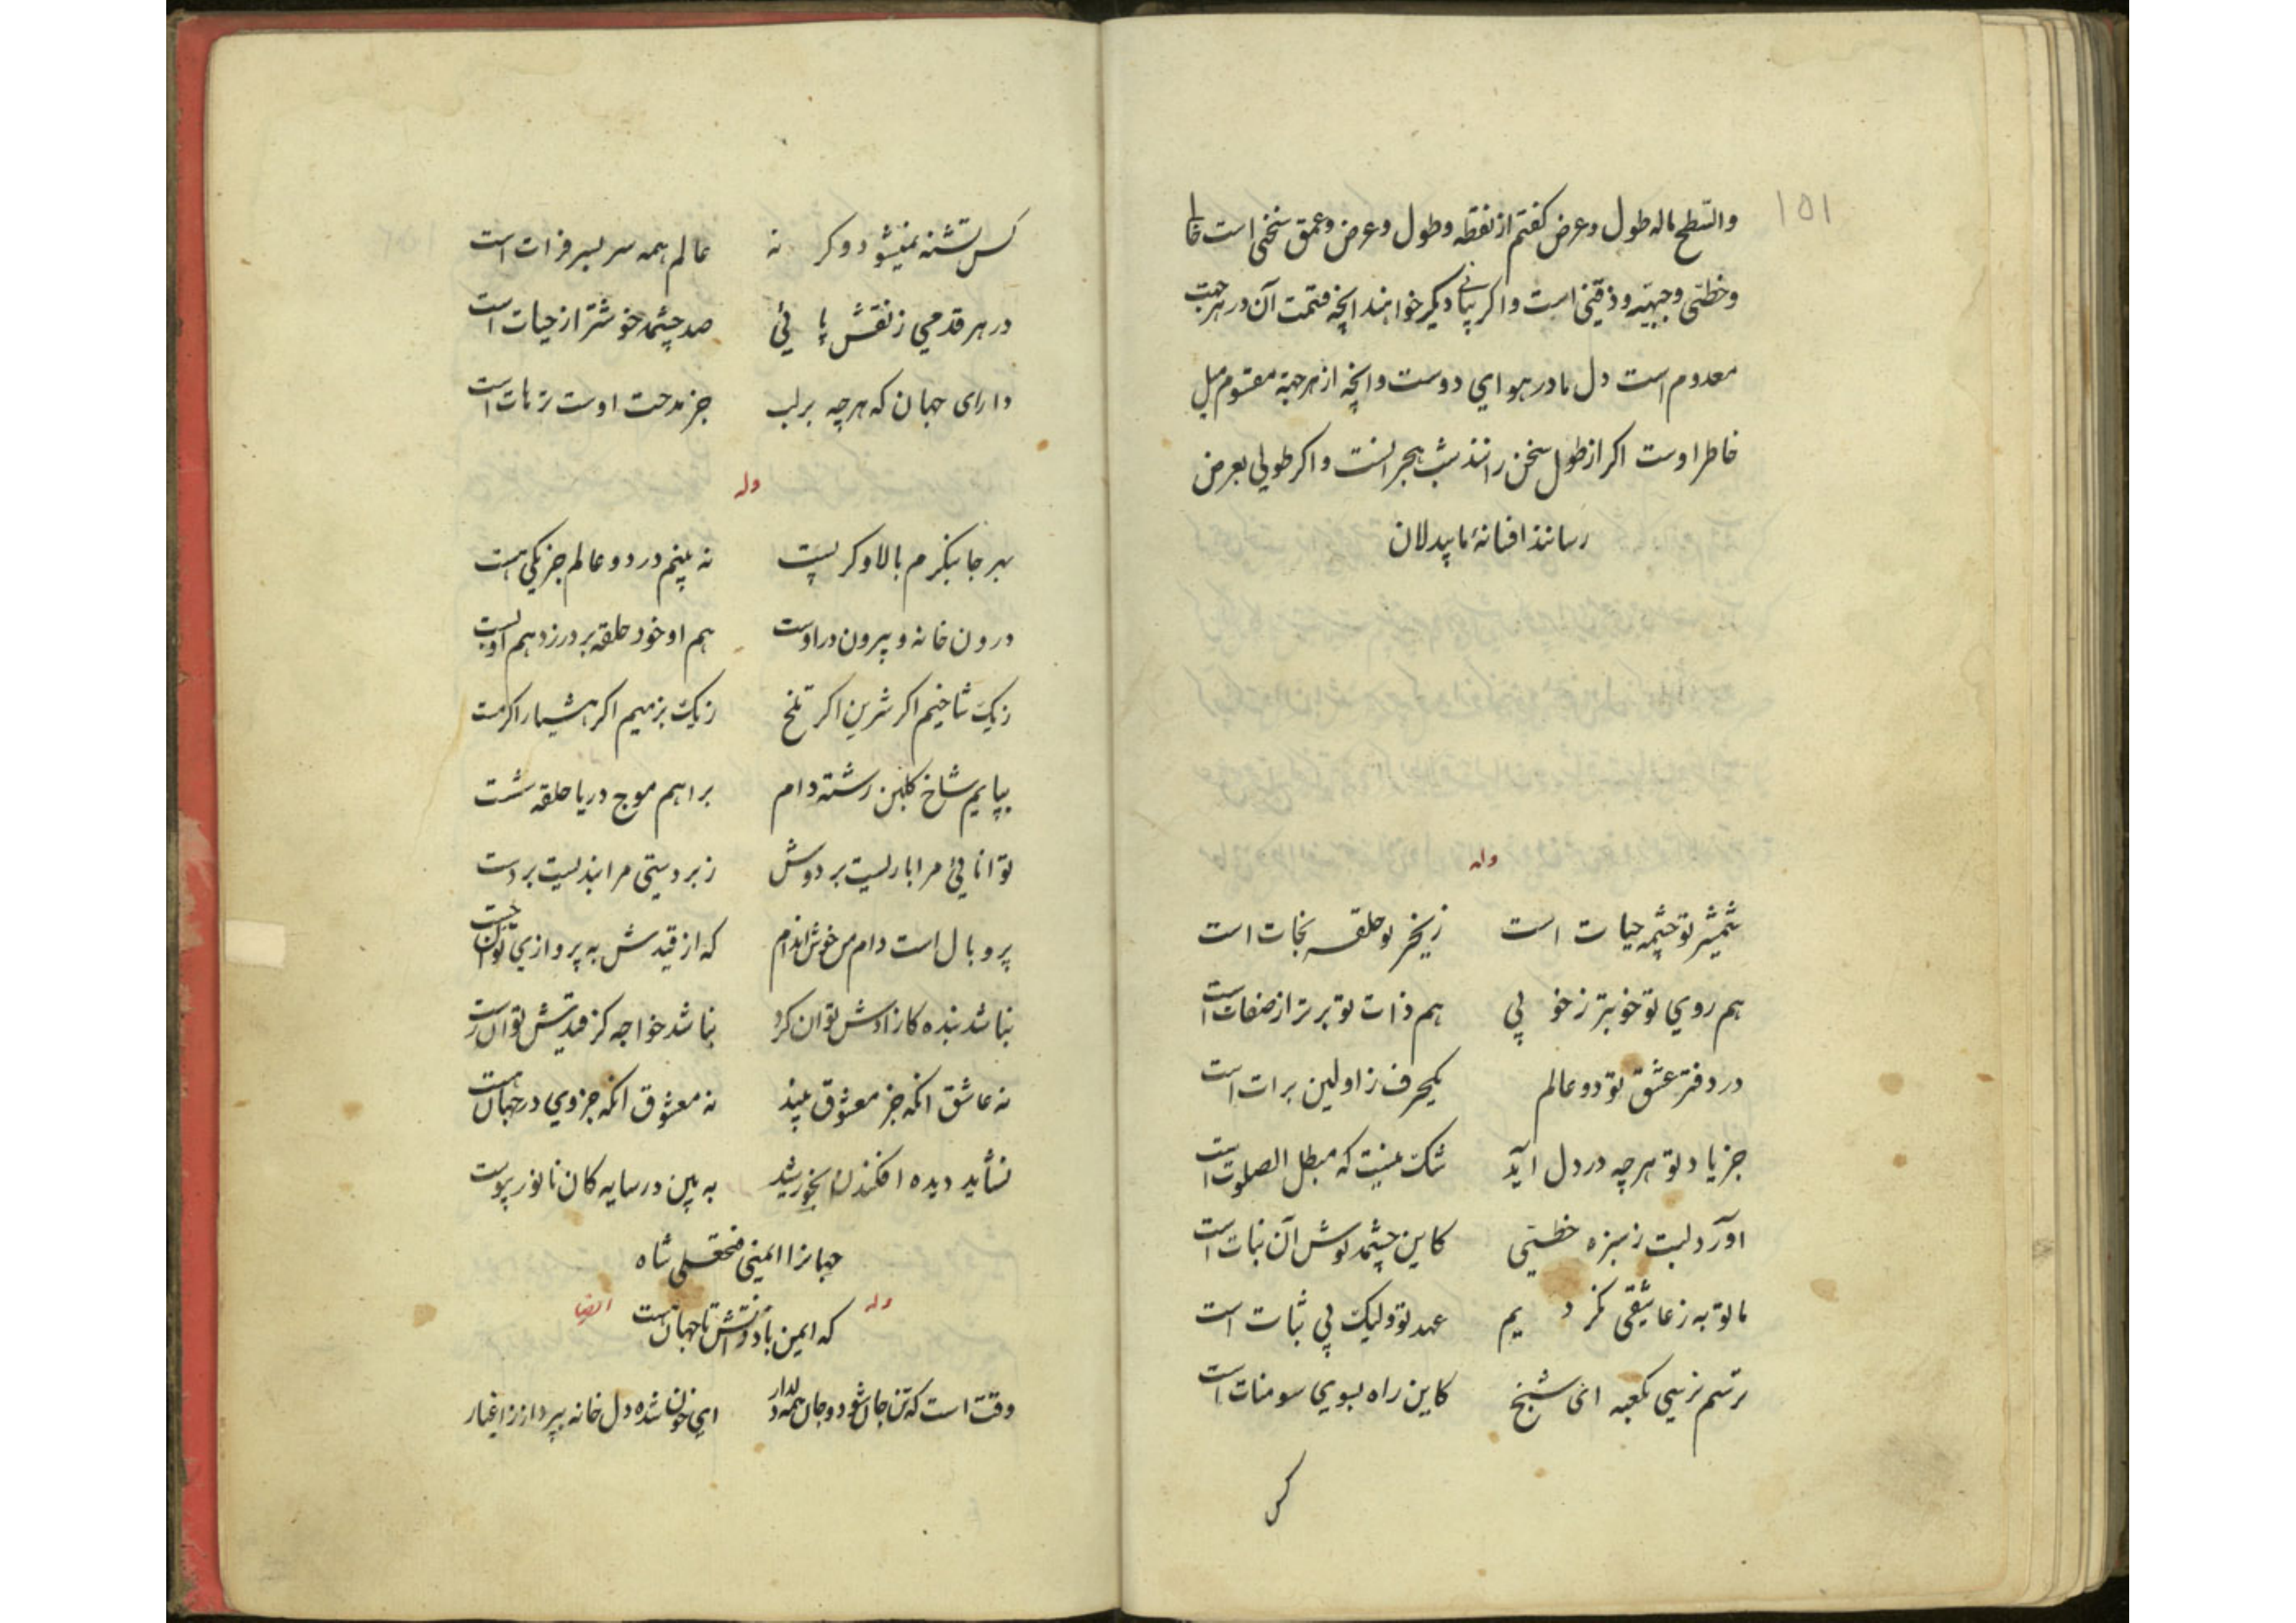 ۱۵۱
والسطح ماله طول و عرض کفتم از نقطه و طول و عرض و عمق سخنی است
و خطی و جهتیه و ذقنی است و اکر بیانی دیکر خواهند انچه قتمت آن در هر جهت
معدوم است دل ما در هوای دوست و انچه از هر جهة مقسوم میل
خاطر اوست اکر از طول سخن رانند شب هجر است و اکر طولی بعرض
رسانند افسانهٔ ما بیدلان
وله
شمشیر تو چشمه حیات است زنجیر تو حلقه نجات است
هم روی تو خوبتر ز خوبی هم ذات تو برتر از صفات است
در دفتر عشق تو دو عالم یکحرف ز اولین برات است
جز یاد تو هرچه در دل آید شک نیست که مبطل الصلوت است
آورد لبت ز سبزه خطی کاین چشمه نوش آن نبات است
ما توبه ز عاشقی نکردیم عهد تو ولیک بی ثبات است
ترسم نرسی بکعبه ای شیخ کاین راه بسوی سومنات است
کس
کس تشنه نمیشود وکر نه عالم همه سر بسر فرات است
در هر قدمی ز نقش پائی صد چشمه خوشتر از حیات است
دارای جهان که هرچه بر لب جز مدحت اوست ترهات است
وله
بهر جا بنکرم بالا وکر پست نه بینم در دو عالم جز یکی هست
درون خانه و بیرون در اوست هم او خود حلقه بر در زد هم او بست
ز یک شاخیم اکر شیرین اکر تلخ ز یک بزمیم اکر هشیار اکر مست
بپایم شاخ کلبن رشته دام براهم موج دریا حلقه شست
توانائی مرا باریست بر دوش زبردستی مرا بندیست بر دست
پر و بال است دام من خوش اندام که از قیدش به پروازی توان جست
نباشد بنده کازادش توان کرد نباشد خواجه کز قیدش توان رست
نه عاشق انکه جز معشوق بیند نه معشوق انکه جز وی در جهان هست
نشاید دیده افکندن بخورشید به بین در سایه کان با نور پیوست
جهانرا ایمنی فتحعلی شاه
که ایمن باد ذاتش تا جهان هست
وله ایضا
وقت است که تن جان شود و جان همه دلدار ای خون شده دل خانه بپرداز ز اغیار